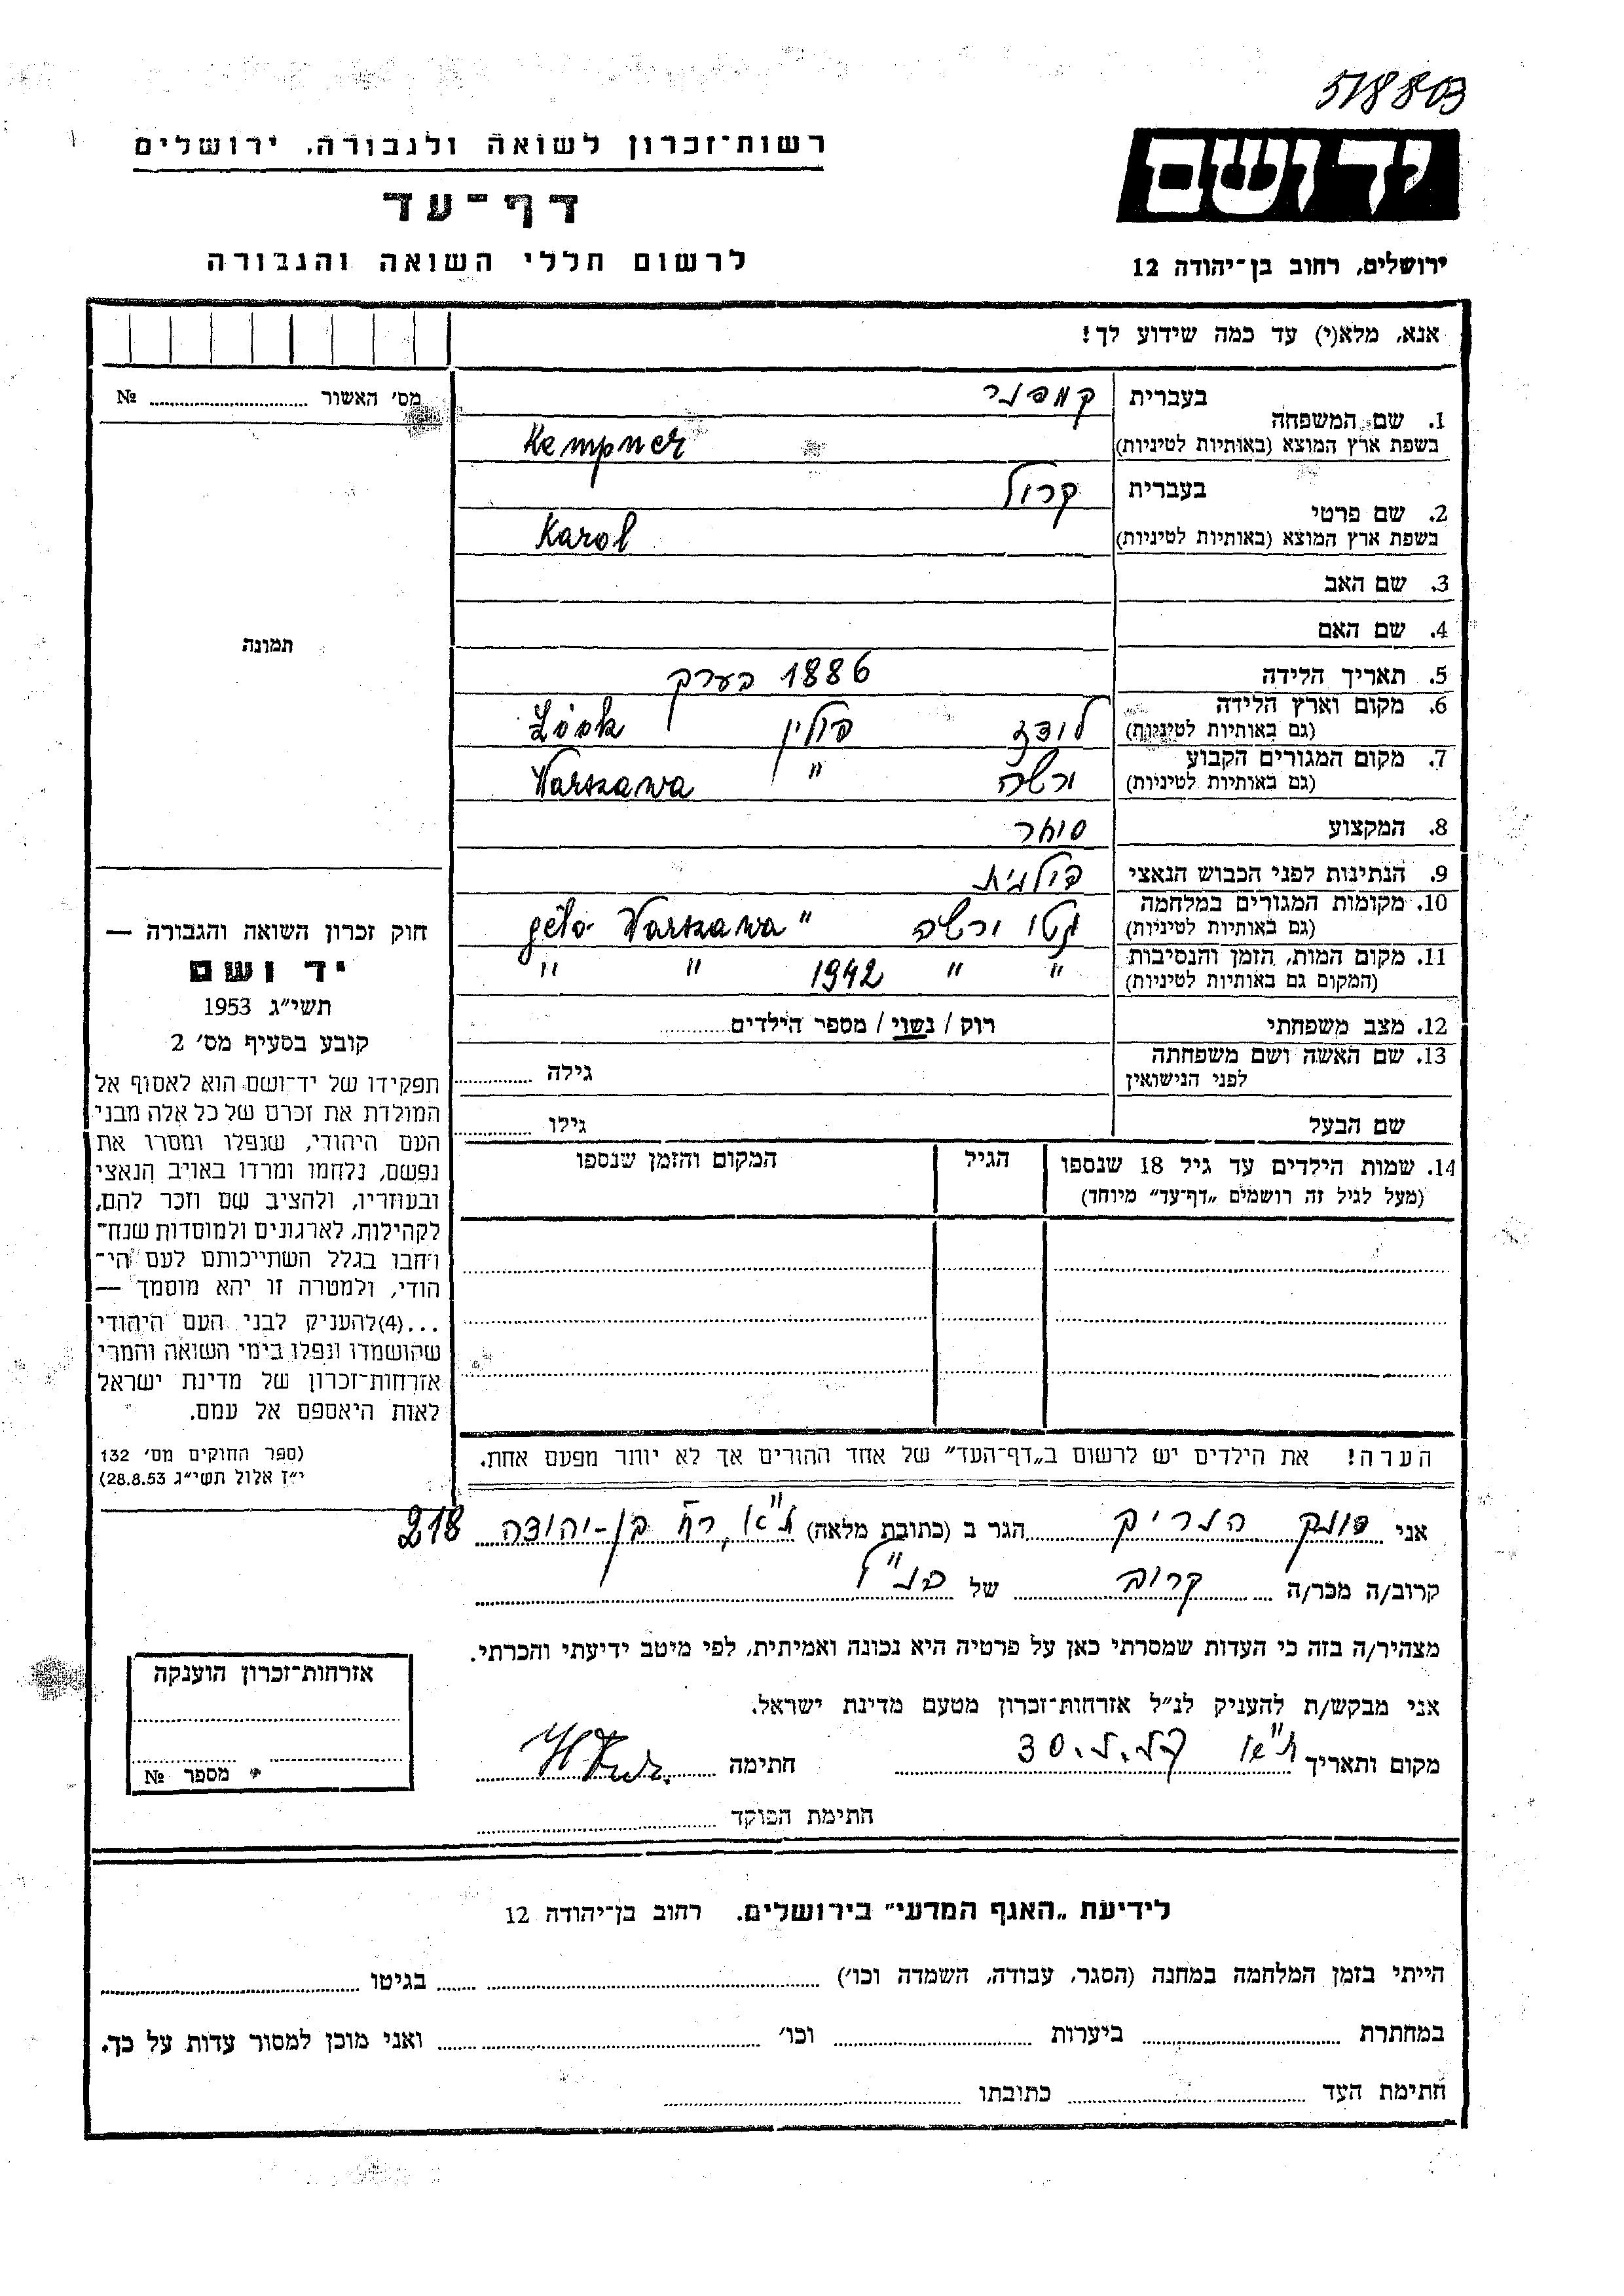 518803
רשות־זכרון לשואה ולגבורה, ירושלים
ידושם
דף־עד
לרשום חללי השואה והגבורה
ירושלים, רחוב בן־יהודה 12
אנא, מלא(י) עד כמה שידוע לך!
מס׳ האשור ........ №
1. שם המשפחה
בעברית קמפנר
בשפת ארץ המוצא (באותיות לטיניות) Kempner
2. שם פרטי
בעברית קרול
בשפת ארץ המוצא (באותיות לטיניות) Karol
3. שם האב
4. שם האם
תמונה
5. תאריך הלידה 1886 בערך
6. מקום וארץ הלידה (גם באותיות לטיניות) לודז פולין
7. מקום המגורים הקבוע (גם באותיות לטיניות) ורשה " Warszawa
8. המקצוע סוחר
9. הנתינות לפני הכבוש הנאצי פולנית
10. מקומות המגורים במלחמה (גם באותיות לטיניות) גטו ורשה " geto Warszawa
11. מקום המות, הזמן והנסיבות (המקום גם באותיות לטיניות) " " 1942 " "
12. מצב משפחתי רוק / נשוי / מספר הילדים........
13. שם האשה ושם משפחתה לפני הנישואין גילה ........
שם הבעל גילו ........
14. שמות הילדים עד גיל 18 שנספו
(מעל לגיל זה רושמים „דף־עד” מיוחד)
הגיל
המקום והזמן שנספו
חוק זכרון השואה והגבורה —
יד ושם
תשי״ג 1953
קובע בסעיף מס׳ 2
תפקידו של יד־ושם הוא לאסוף אל
המולדת את זכרם של כל אלה מבני
העם היהודי, שנפלו ומסרו את
נפשם, נלחמו ומרדו באויב הנאצי
ובעוזריו, ולהציב שם וזכר להם,
לקהילות, לארגונים ולמוסדות שנח־
רחבו בגלל השתייכותם לעם הי־
הודי, ולמטרה זו יהא מוסמך —
...(4)להעניק לבני העם היהודי
שהושמדו ונפלו בימי השואה והמרי
אזרחות־זכרון של מדינת ישראל
לאות היאספם אל עמם.
(ספר החוקים מס׳ 132
י״ז אלול תשי״ג 28.8.53)
הערה! את הילדים יש לרשום ב„דף־העד” של אחד ההורים אך לא יותר מפעם אחת.
אני הנריק הגר ב (כתובת מלאה) ת״א, רח׳ בן-יהודה 218
קרוב/ה מכר/ה קרוב של הנ״ל
מצהיר/ה בזה כי העדות שמסרתי כאן על פרטיה היא נכונה ואמיתית, לפי מיטב ידיעתי והכרתי.
אני מבקש/ת להעניק לנ״ל אזרחות־זכרון מטעם מדינת ישראל.
מקום ותאריך ת״א חתימה
חתימת הפוקד
אזרחות־זכרון הוענקה
מספר №
לידיעת „האגף המדעי” בירושלים. רחוב בן־יהודה 12
הייתי בזמן המלחמה במחנה (הסגר, עבודה, השמדה וכו׳) ........ בגיטו ........
במחתרת ........ ביערות ........ וכו׳ ........ ואני מוכן למסור עדות על כך.
חתימת העד ........ כתובתו ........